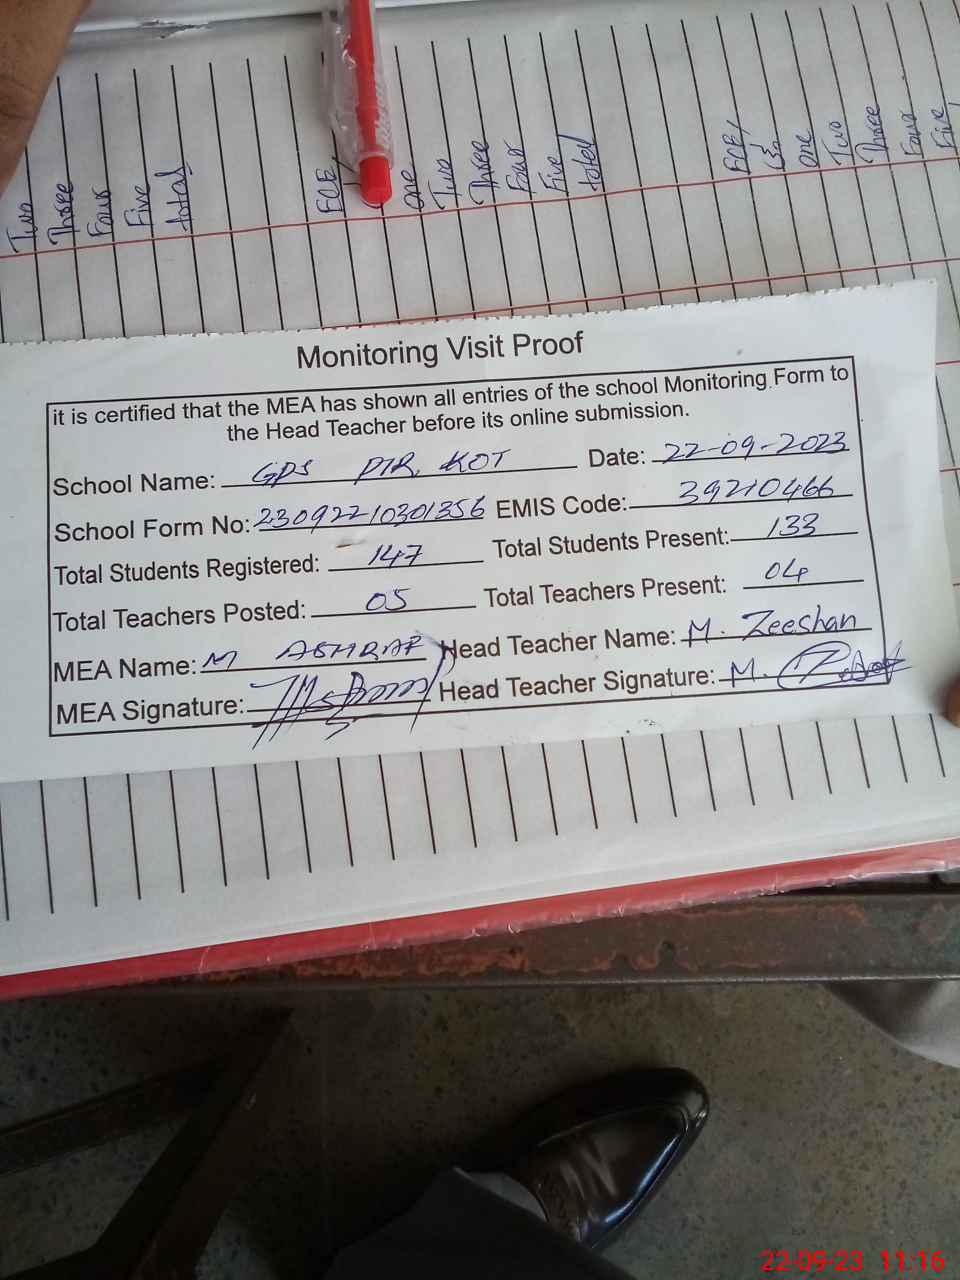 Two
Three
Four
Five
total
ECE/
one
Two
Three
Four
Five
total
ECE/
one
Two
Three
Four
Five
Monitoring Visit Proof
it is certified that the MEA has shown all entries of the school Monitoring Form to
the Head Teacher before its online submission.
School Name: GPS PIR KOT Date: 22-09-2023
School Form No: 23092210301356 EMIS Code: 39210466
Total Students Registered: 147 Total Students Present: 133
Total Teachers Posted: 05 Total Teachers Present: 04
MEA Name: M ASHRAF Head Teacher Name: M. Zeeshan
MEA Signature: Head Teacher Signature: M.
22-09-23 11:16